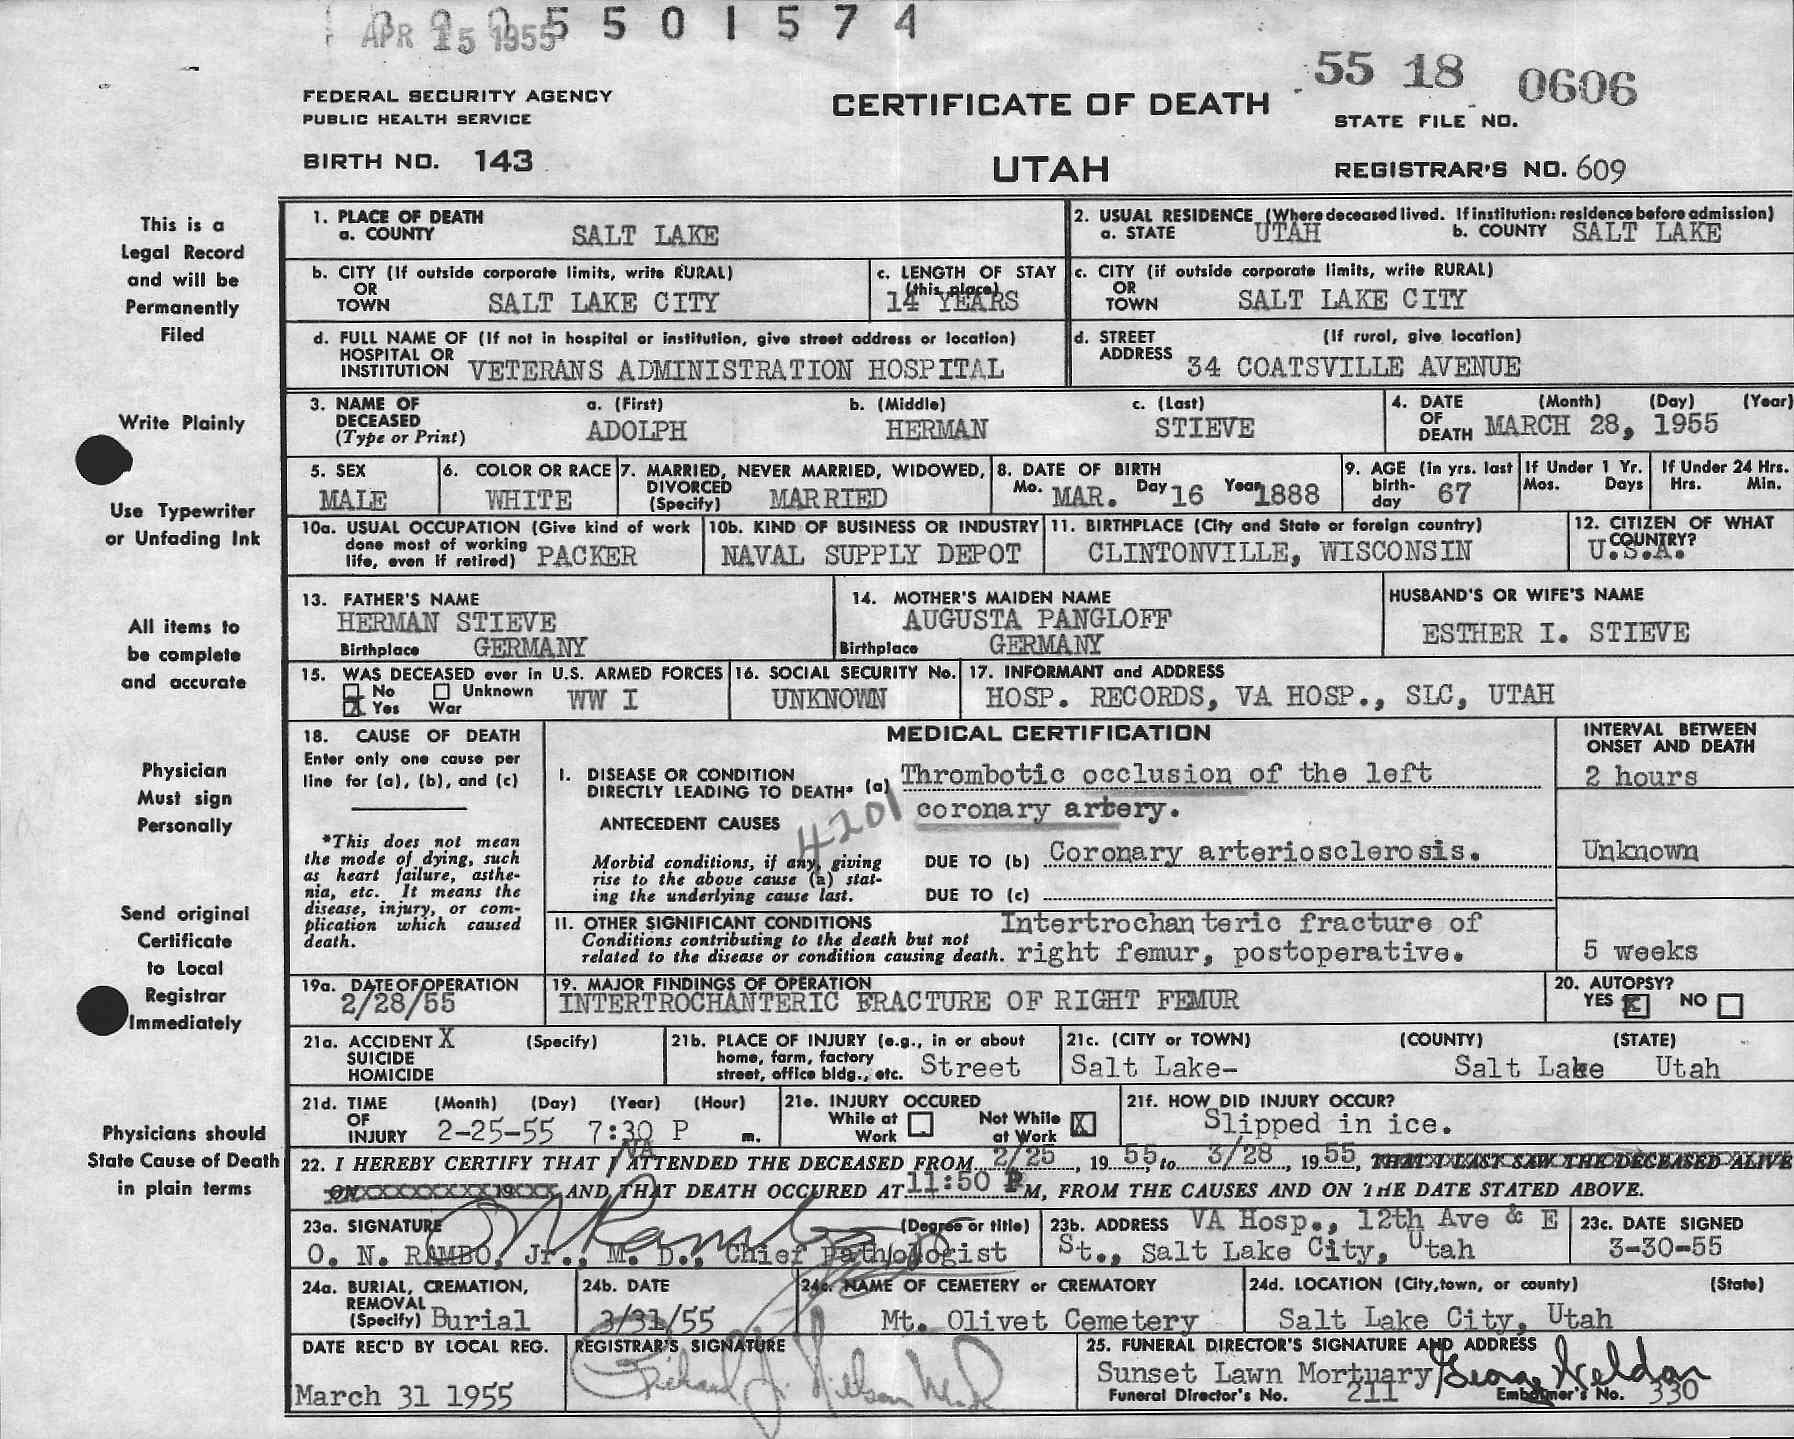 APR 15 1955
5501574
55 18 0606
FEDERAL SECURITY AGENCY
PUBLIC HEALTH SERVICE
CERTIFICATE OF DEATH
STATE FILE NO.
BIRTH NO. 143
UTAH
REGISTRAR'S NO. 609
This is a
Legal Record
and will be
Permanently
Filed
Write Plainly
Use Typewriter
or Unfading Ink
All items to
be complete
and accurate
Physician
Must sign
Personally
Send original
Certificate
to Local
Registrar
Immediately
Physicians should
State Cause of Death
in plain terms
1. PLACE OF DEATH
a. COUNTY SALT LAKE
2. USUAL RESIDENCE (Where deceased lived. If institution: residence before admission)
a. STATE UTAH b. COUNTY SALT LAKE
b. CITY (If outside corporate limits, write RURAL)
OR
TOWN SALT LAKE CITY
c. LENGTH OF STAY
(this place)
14 YEARS
c. CITY (if outside corporate limits, write RURAL)
OR
TOWN SALT LAKE CITY
d. FULL NAME OF (If not in hospital or institution, give street address or location)
HOSPITAL OR
INSTITUTION VETERANS ADMINISTRATION HOSPITAL
d. STREET (If rural, give location)
ADDRESS 34 COATSVILLE AVENUE
3. NAME OF a. (First) b. (Middle) c. (Last)
DECEASED
(Type or Print) ADOLPH HERMAN STIEVE
4. DATE (Month) (Day) (Year)
OF
DEATH MARCH 28, 1955
5. SEX
MALE
6. COLOR OR RACE
WHITE
7. MARRIED, NEVER MARRIED, WIDOWED,
DIVORCED
(Specify) MARRIED
8. DATE OF BIRTH
Mo. MAR. Day 16 Year 1888
9. AGE (in yrs. last
birth-
day 67
If Under 1 Yr.
Mos. Days
If Under 24 Hrs.
Hrs. Min.
10a. USUAL OCCUPATION (Give kind of work
done most of working
life, even if retired) PACKER
10b. KIND OF BUSINESS OR INDUSTRY
NAVAL SUPPLY DEPOT
11. BIRTHPLACE (City and State or foreign country)
CLINTONVILLE, WISCONSIN
12. CITIZEN OF WHAT
COUNTRY?
U.S.A.
13. FATHER'S NAME
HERMAN STIEVE
Birthplace GERMANY
14. MOTHER'S MAIDEN NAME
AUGUSTA PANGLOFF
Birthplace GERMANY
HUSBAND'S OR WIFE'S NAME
ESTHER I. STIEVE
15. WAS DECEASED ever in U.S. ARMED FORCES
No Unknown
X Yes War WW I
16. SOCIAL SECURITY No.
UNKNOWN
17. INFORMANT and ADDRESS
HOSP. RECORDS, VA HOSP., SLC, UTAH
18. CAUSE OF DEATH
Enter only one cause per
line for (a), (b), and (c)
*This does not mean
the mode of dying, such
as heart failure, asthe-
nia, etc. It means the
disease, injury, or com-
plication which caused
death.
MEDICAL CERTIFICATION
INTERVAL BETWEEN
ONSET AND DEATH
I. DISEASE OR CONDITION
DIRECTLY LEADING TO DEATH* (a) Thrombotic occlusion of the left
coronary artery.
2 hours
4201
ANTECEDENT CAUSES
Morbid conditions, if any, giving
rise to the above cause (a) stat-
ing the underlying cause last.
DUE TO (b) Coronary arteriosclerosis.
Unknown
DUE TO (c)
II. OTHER SIGNIFICANT CONDITIONS
Conditions contributing to the death but not
related to the disease or condition causing death.
Intertrochanteric fracture of
right femur, postoperative.
5 weeks
19a. DATE OF OPERATION
2/28/55
19. MAJOR FINDINGS OF OPERATION
INTERTROCHANTERIC FRACTURE OF RIGHT FEMUR
20. AUTOPSY?
YES X NO
21a. ACCIDENT X (Specify)
SUICIDE
HOMICIDE
21b. PLACE OF INJURY (e.g., in or about
home, farm, factory
street, office bldg., etc. Street
21c. (CITY or TOWN) (COUNTY) (STATE)
Salt Lake- Salt Lake Utah
21d. TIME (Month) (Day) (Year) (Hour)
OF
INJURY 2-25-55 7:30 P m.
21e. INJURY OCCURED
While at Work
Not While at Work X
21f. HOW DID INJURY OCCUR?
Slipped in ice.
22. I HEREBY CERTIFY THAT I VA ATTENDED THE DECEASED FROM 2/25, 1955, to 3/28, 1955, THAT I LAST SAW THE DECEASED ALIVE
ON XXXXXXXX 19XXX AND THAT DEATH OCCURED AT 11:50 P M, FROM THE CAUSES AND ON THE DATE STATED ABOVE.
23a. SIGNATURE (Degree or title)
O. N. RAMBO, Jr., M. D., Chief Pathologist
23b. ADDRESS VA Hosp., 12th Ave & E
St., Salt Lake City, Utah
23c. DATE SIGNED
3-30-55
24a. BURIAL, CREMATION,
REMOVAL
(Specify) Burial
24b. DATE
3/31/55
24c. NAME OF CEMETERY or CREMATORY
Mt. Olivet Cemetery
24d. LOCATION (City, town, or county) (State)
Salt Lake City, Utah
DATE REC'D BY LOCAL REG.
March 31 1955
REGISTRAR'S SIGNATURE
25. FUNERAL DIRECTOR'S SIGNATURE AND ADDRESS
Sunset Lawn Mortuary George Weldon
Funeral Director's No. 211 Embalmer's No. 330